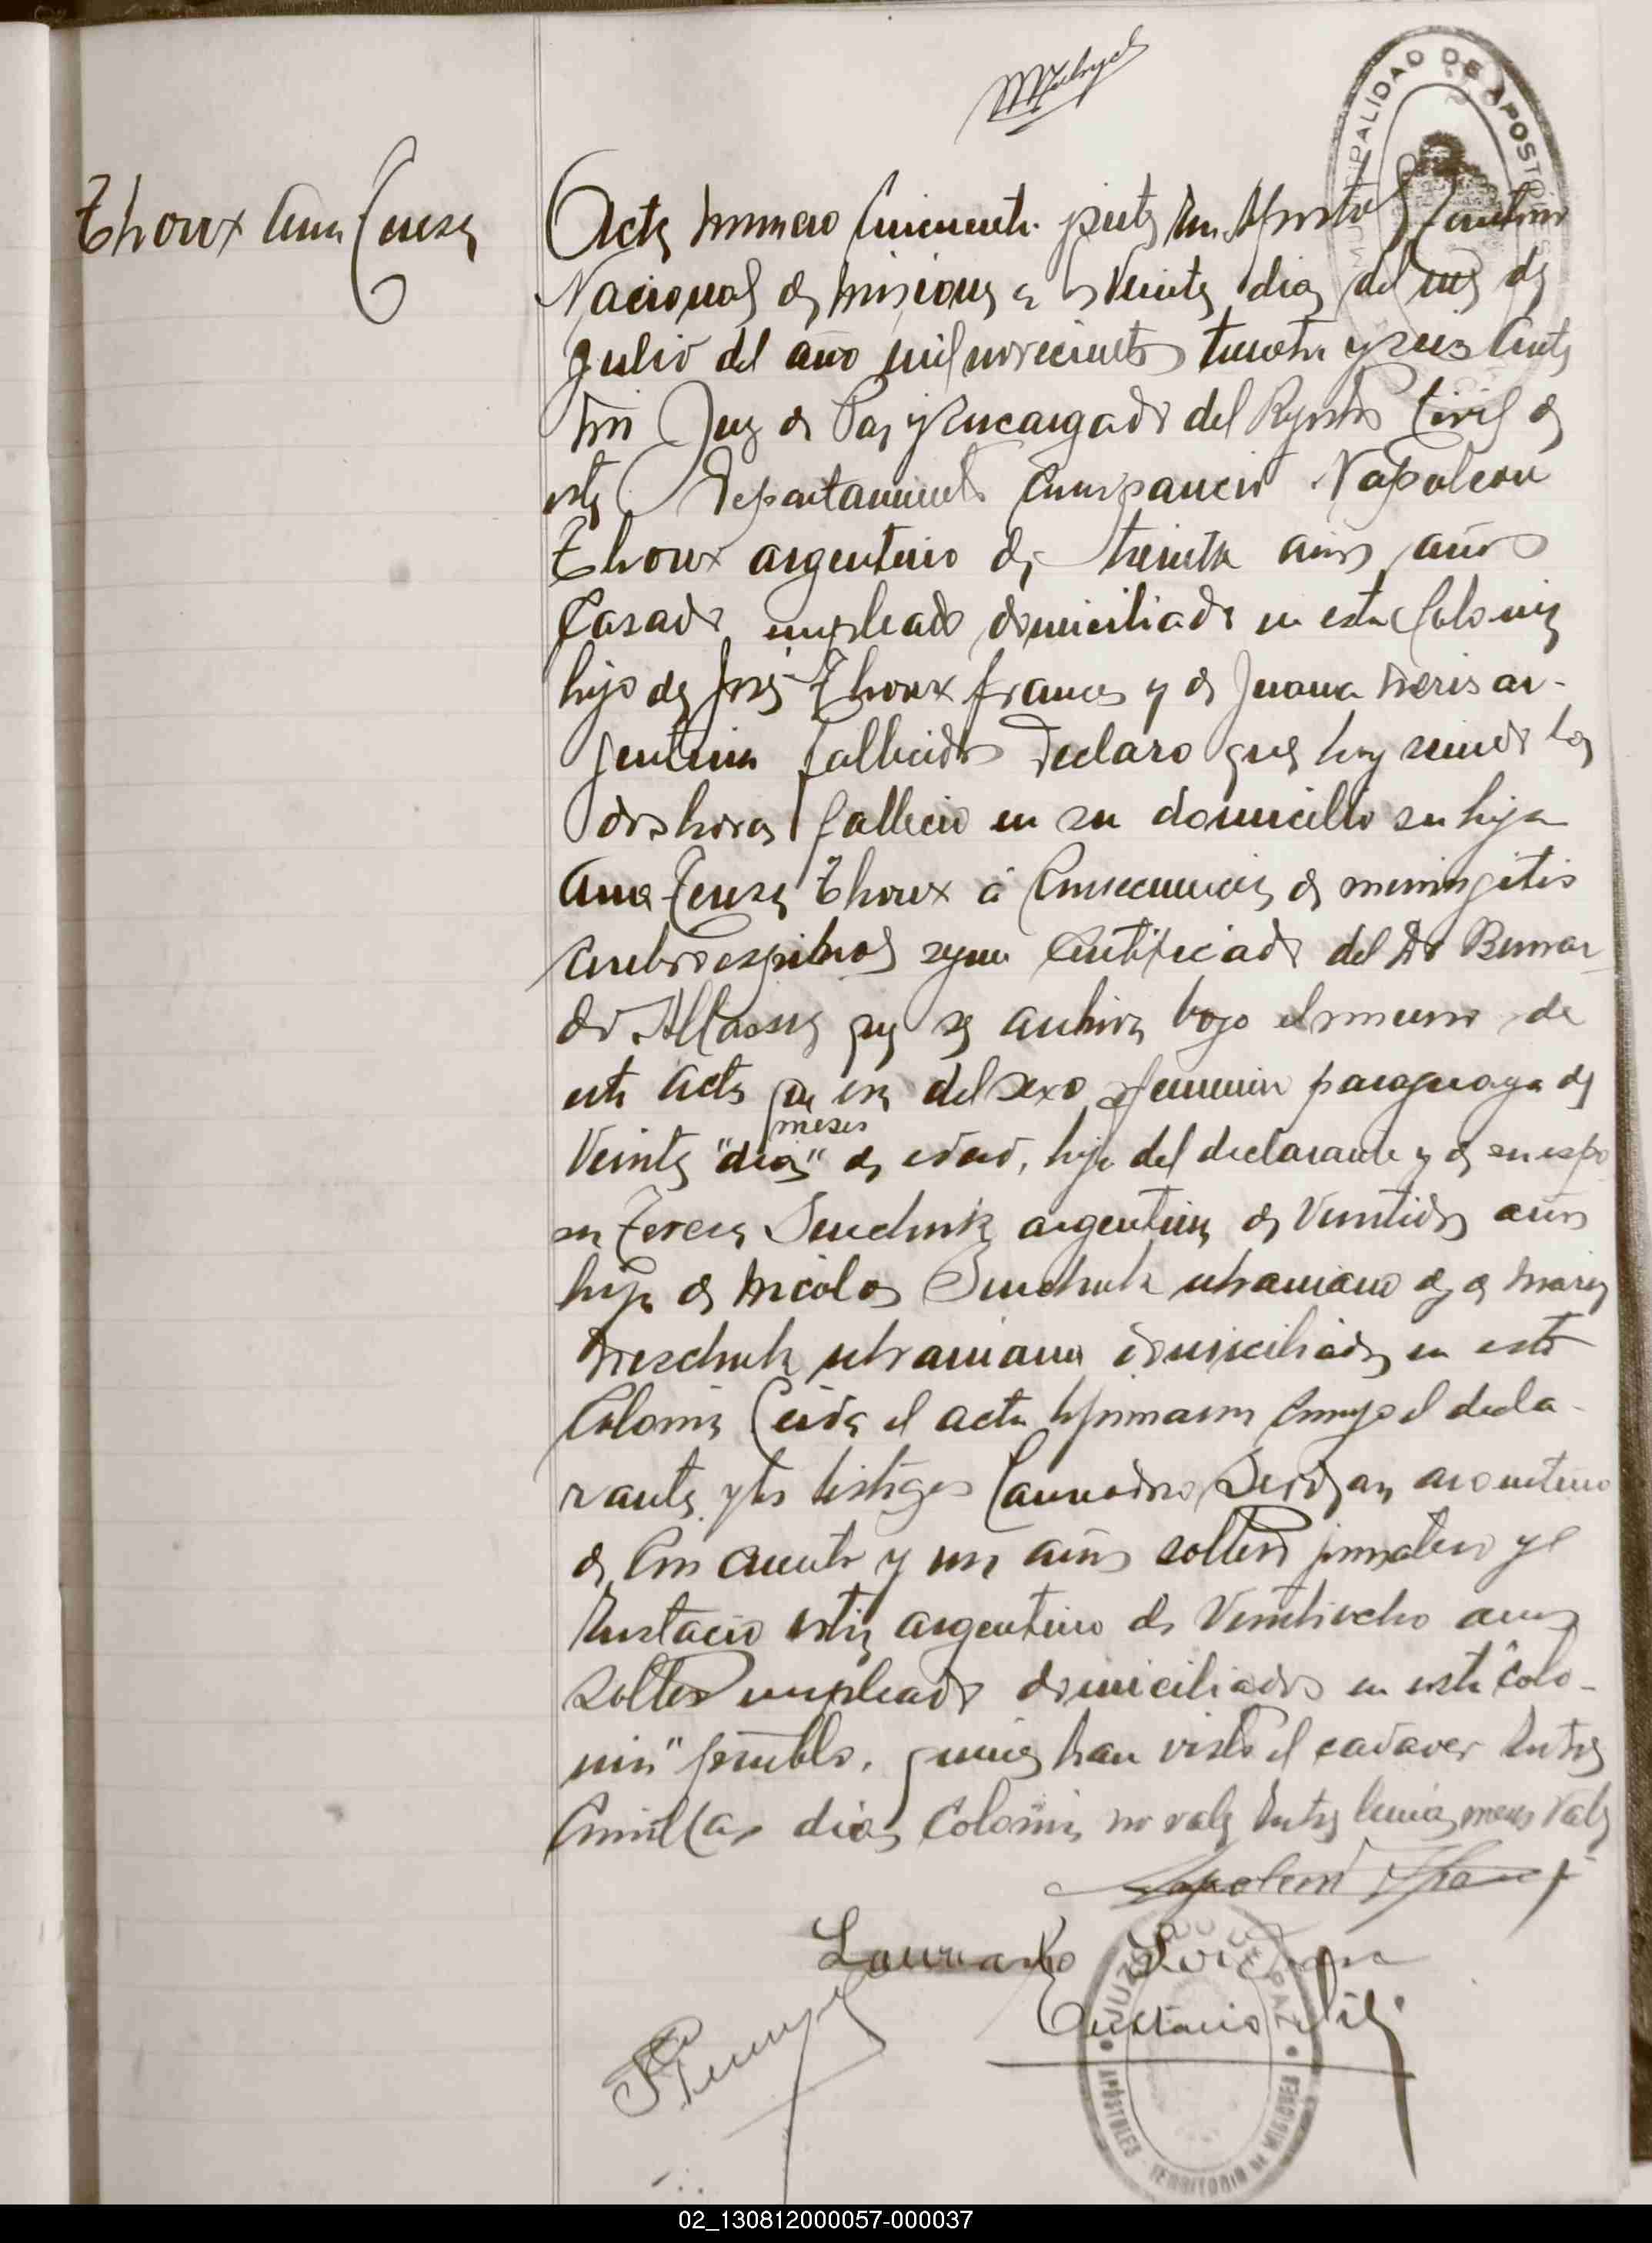 MUNICIPALIDAD DE APOSTOLES
Thoux Ana Teresa
Acta numero Cincuenta siete En Apostoles Territorio
Nacional de Misiones a los Veinte dias del mes de
Julio del año mil novecientos treinta y seis Ante
mi Juez de Paz y Encargado del Registro Civil de
este Departamento Comparecio Napoleon
Thoux argentino de treinta años
Casado empleado domiciliado en esta Colonia
hijo de José Thoux frances y de Juana ar-
gentina fallecidos Declaro que hoy siendo las
dos horas fallecio en su domicilio su hija
Ana Teresa Thoux á Consecuencia de meningitis
cerebroespinal segun Certificado del Dr Bernar-
do que se archiva bajo el numero de
este Acta que era del sexo femenino paraguaya de
meses
Veinte "dias" de edad, hija del declarante y de su espo
sa Teresa argentina de Veintidos años
hija de Nicolas ukraniano y de Maria
ukraniana domiciliados en esta
Colonia Leida el acta la firmaron Conmigo el decla-
rante y los testigos argentino
de Cincuenta y un años soltero y
Eustacio argentino de Veintiocho años
soltero empleado domiciliados en esta "colo-
nia" pueblo, quienes han visto el cadaver Entre
Comillas dias Colonia no vale Entre lineas meses Vale
Napoleon Thoux
Eustacio
JUZGADO DE PAZ
APÓSTOLES - TERRITORIO DE MISIONES
02_130812000057-000037